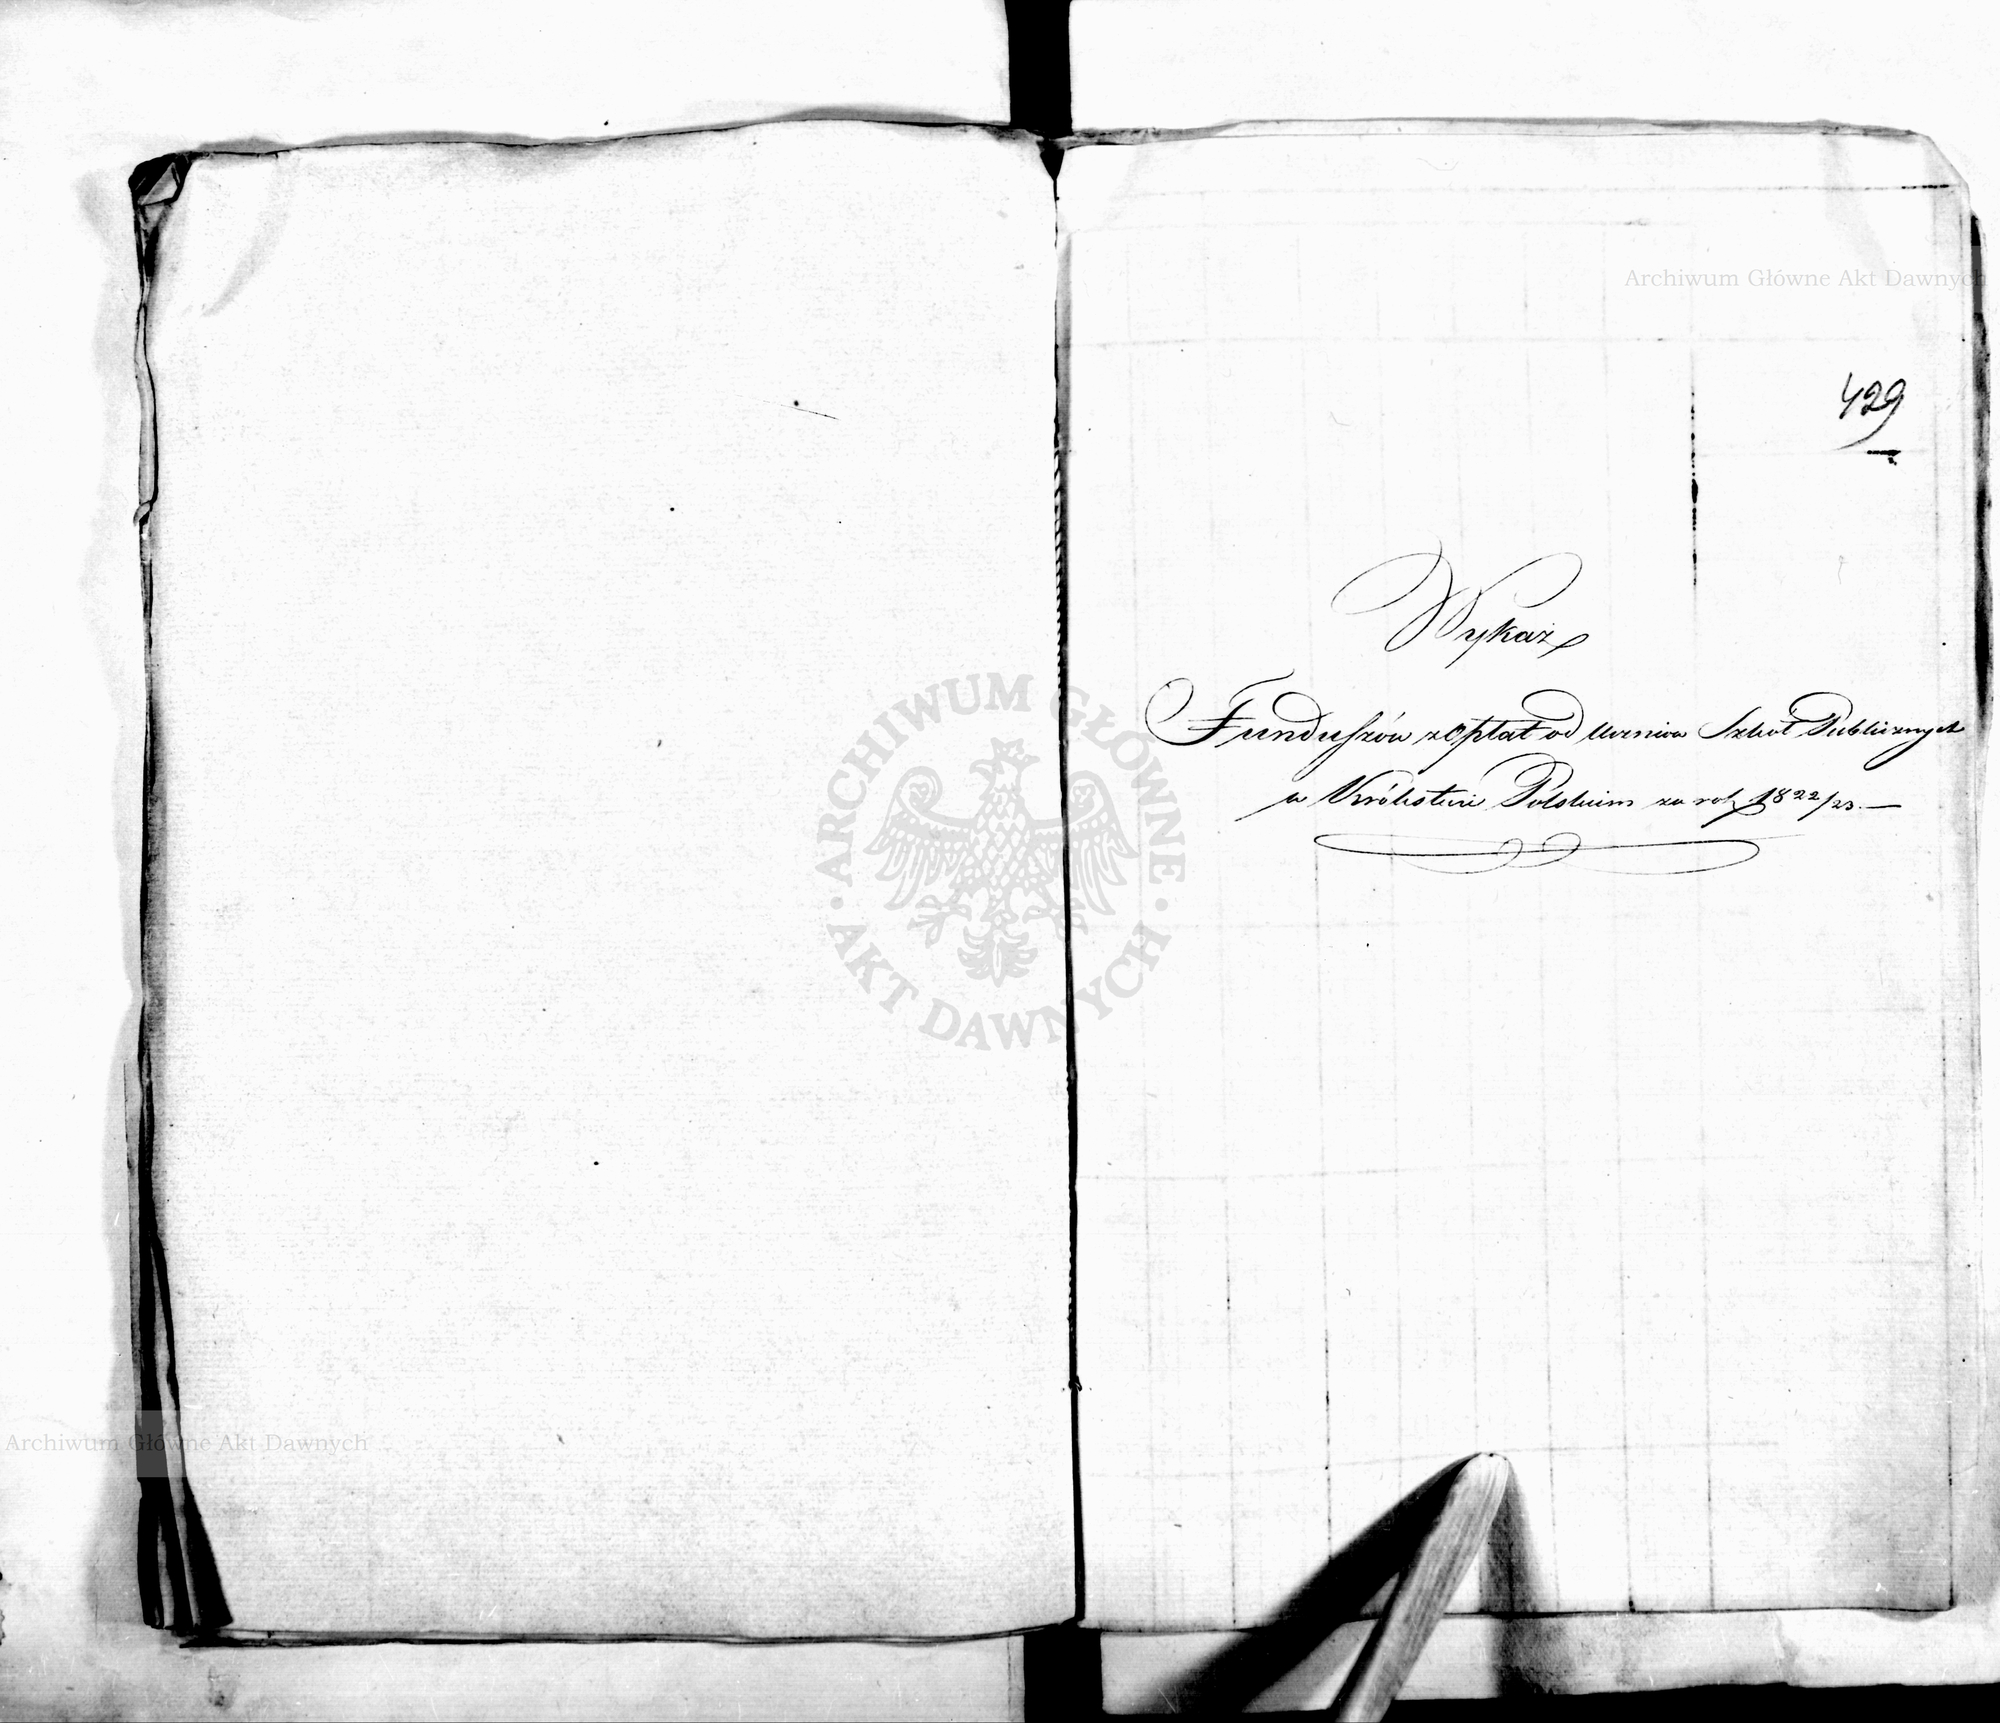 Archiwum Główne Akt Dawnych
429
Wykaz
Funduszów z opłat od Uczniów Szkół Publicznych
w Królestwie Polskim za rok 1822/23.
ARCHIWUM GŁÓWNE AKT DAWNYCH
Archiwum Główne Akt Dawnych